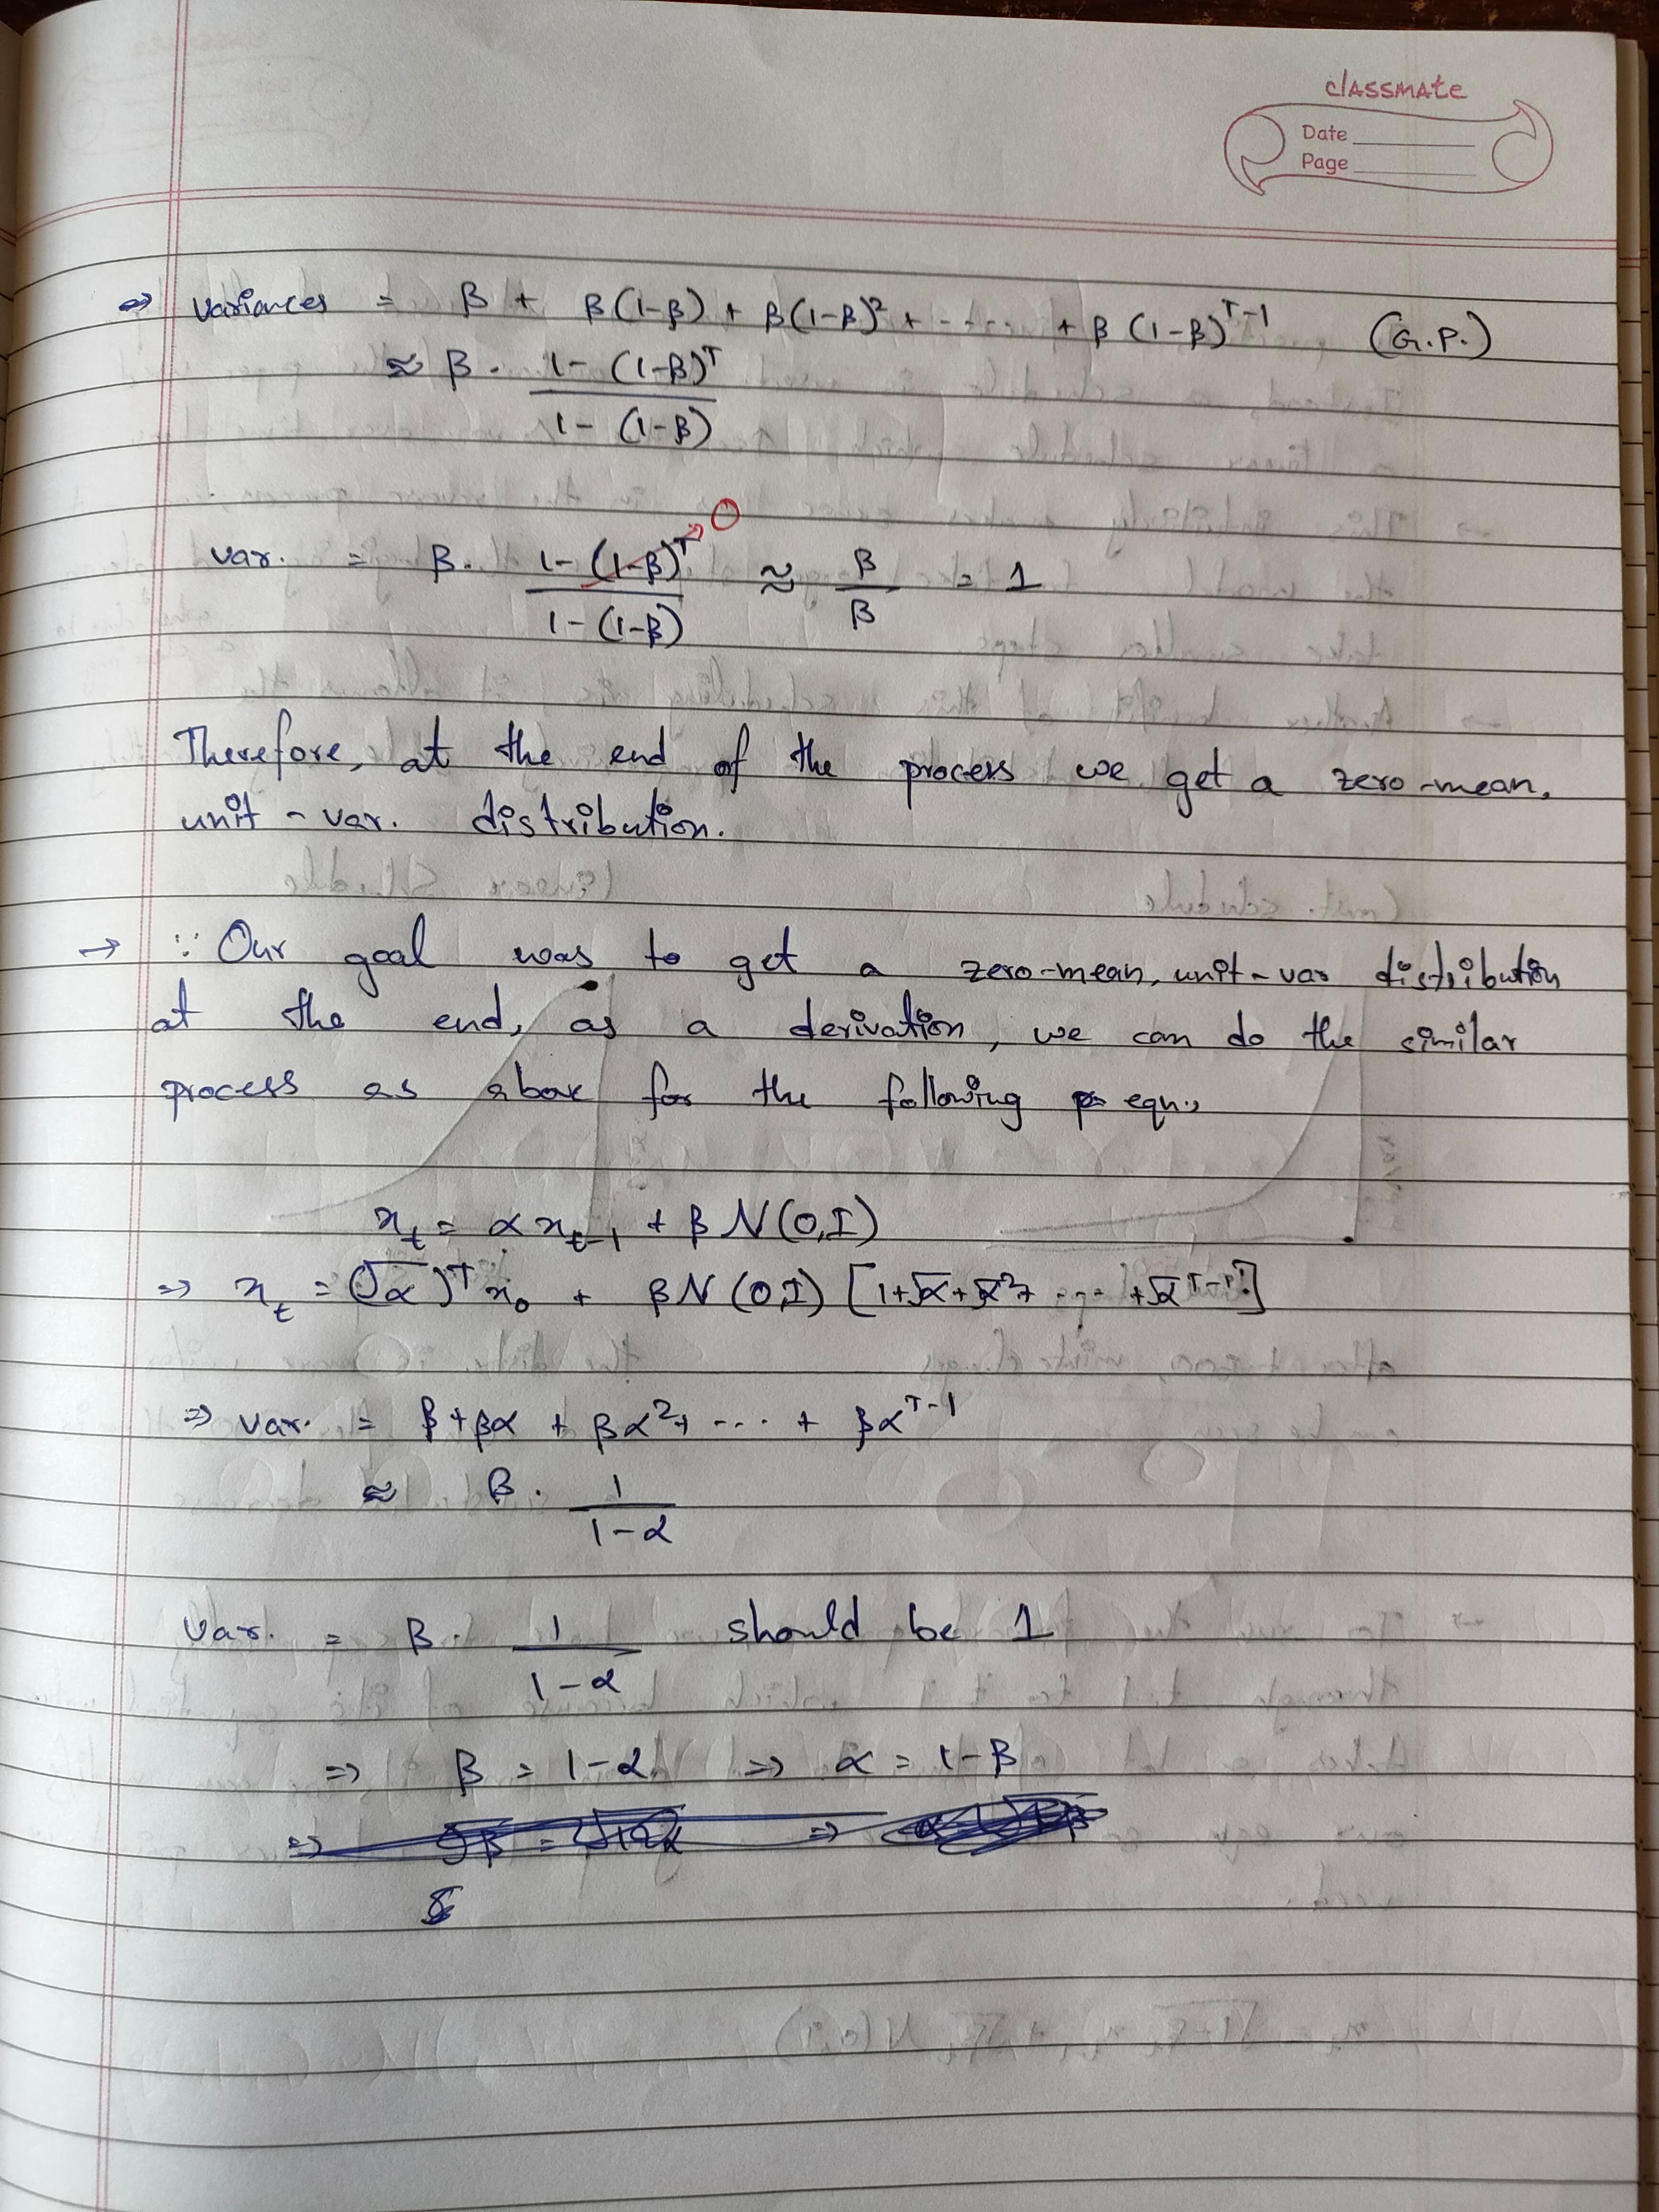 classmate
Date
Page
⇒ Variances = β + β(1-β) + β(1-β)² + ----- + β(1-β)^T-1 (G.P.)
≈ β. 1-(1-β)^T / 1-(1-β)
var. = β. 1-(1-β)^T → 0 / 1-(1-β) ≈ β/β = 1
Therefore, at the end of the process we get a zero-mean,
unit-var. distribution.
→ ∵ Our goal was to get a zero-mean, unit-var distribution
at the end, as a derivation, we can do the similar
process as above for the following eqn.,
x_t = αx_t-1 + βN(0,I)
⇒ x_t = (√α)^T x_0 + βN(0,I) [1+√α+√α²+ --- +√α^T-1]
⇒ var. = β+βα + βα²+ --- + βα^T-1
≈ β. 1/1-α
Var. = β. 1/1-α should be 1
⇒ β = 1-α ⇒ α = 1-β